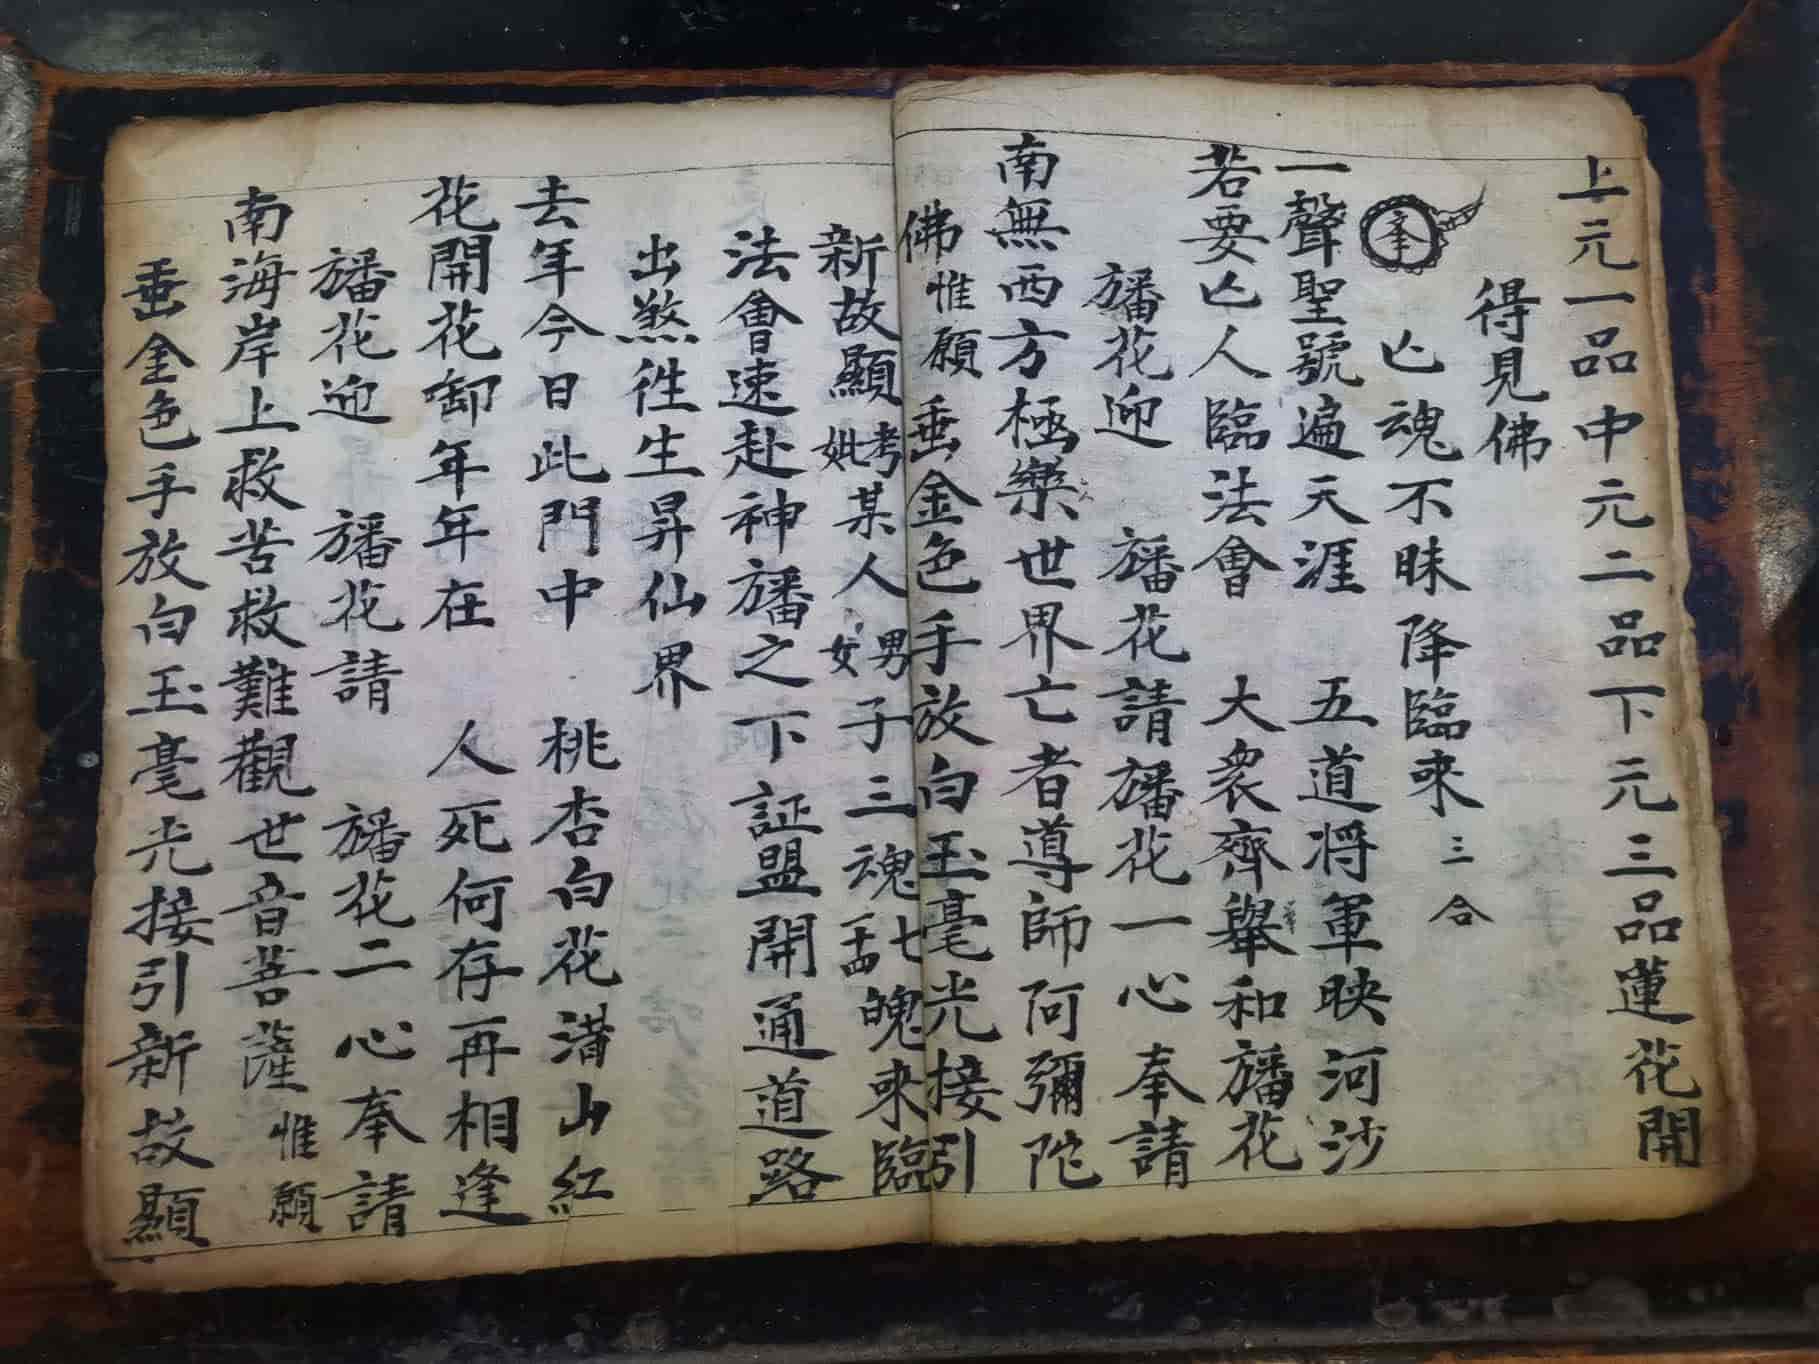 上元一品中元二品下元三品蓮花開
得見佛
奉 亾魂不昧降臨来 三合
一聲聖號遍天涯 五道将軍映河沙
若要亾人臨法會 大衆齊舉和旛花
旛花迎 旛花請旛花一心奉請
南無西方極樂世界亡者導師阿彌陀
佛 惟願 垂金色手放白玉毫光接引
新故顯考妣某人男女子三魂七十四魄来臨
法會速赴神旛之下証盟開通道路
出煞徃生昇仙界
去年今日此門中 桃杏白花满山紅
花開花卸年年在 人死何存再相逢
旛花迎 旛花請 旛花二心奉請
南海岸上救苦救難觀世音菩薩 惟願
垂金色手放白玉毫光接引新故顯